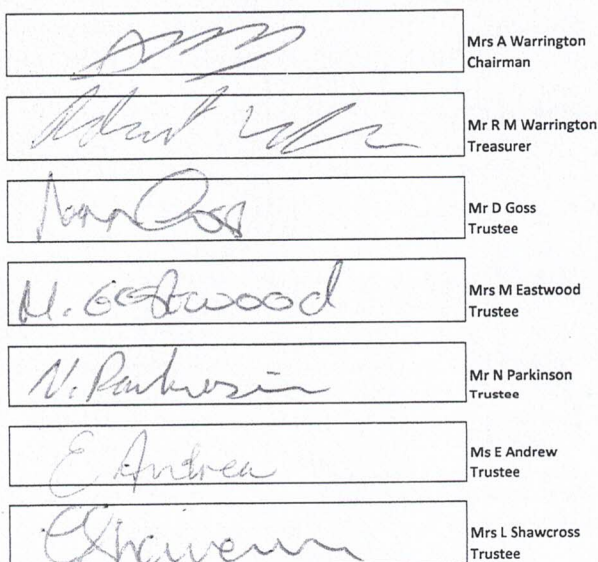 Mrs A Warrington
Chairman
Mr R M Warrington
Treasurer
Mr D Goss
Trustee
M. Eastwood
Mrs M Eastwood
Trustee
N. Parkinson
Mr N Parkinson
Trustee
E Andrew
Ms E Andrew
Trustee
Mrs L Shawcross
Trustee